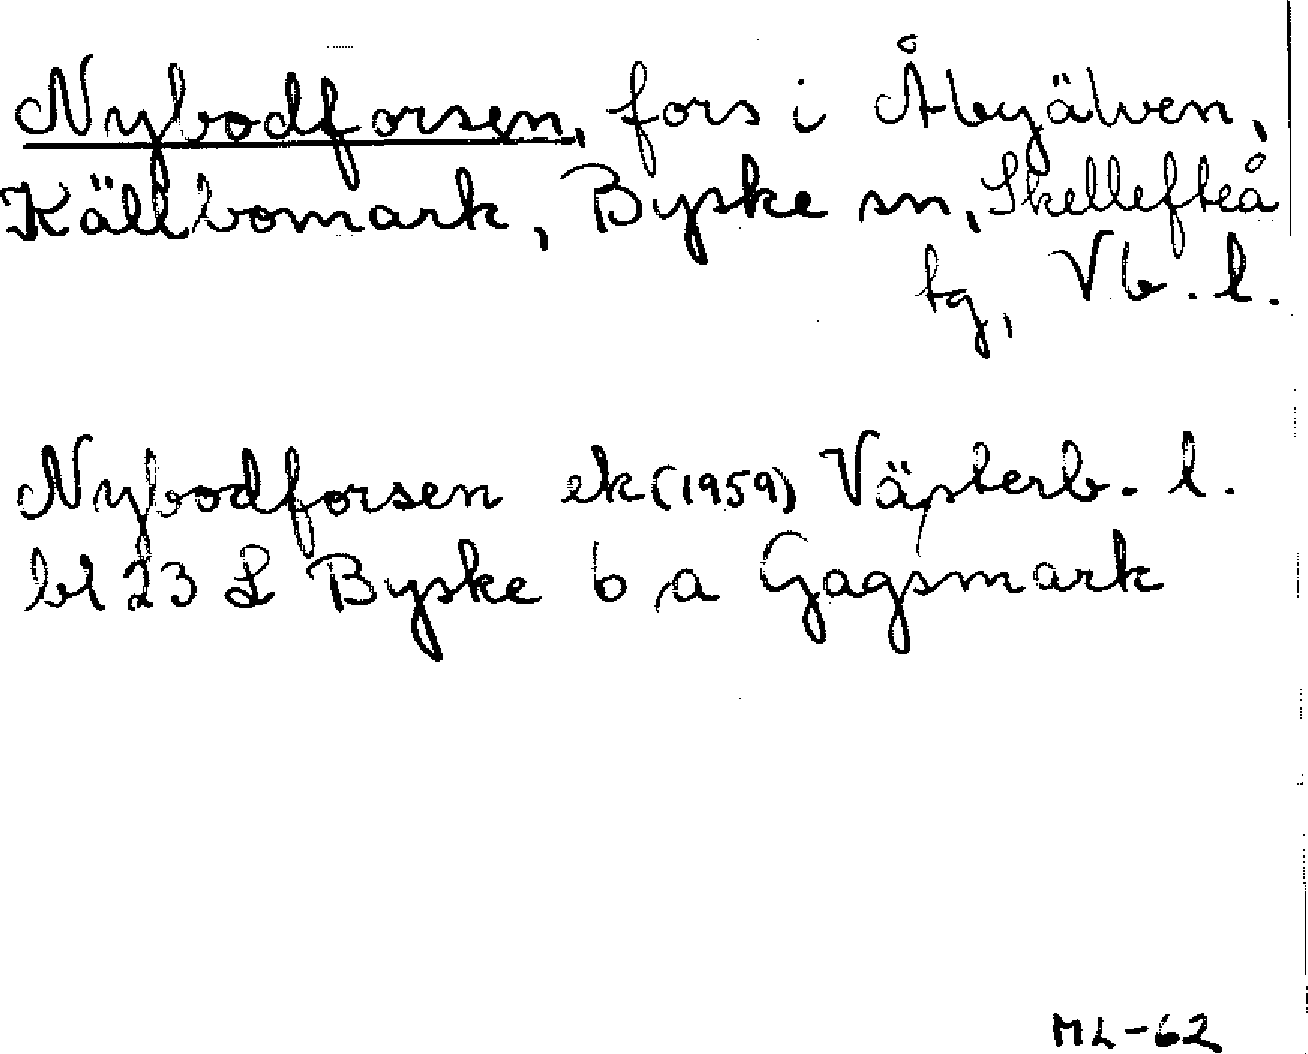 Nybodforsen, fors i Åbyälven,
Källbomark, Byske sn, Skellefteå
tg, Vb. l.
Nybodforsen ek (1959) Västerb. l.
bl 23 L Byske 6 a Gagsmark
ML-62